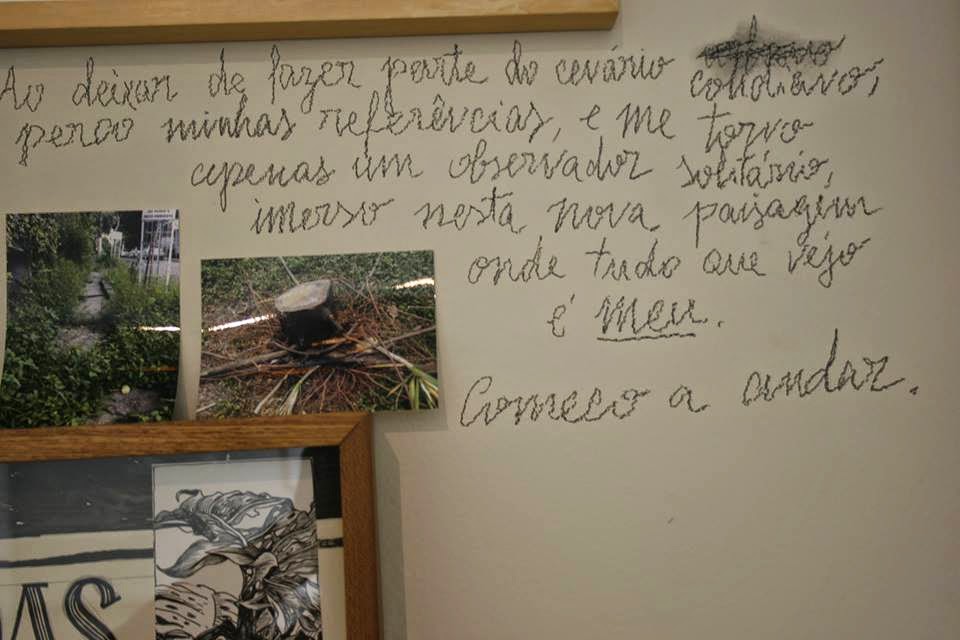 Ao deixar de fazer parte do cenário
cotidiano,
perco minhas referências, e me torno
apenas um observador solitário,
imerso nesta nova paisagem
onde tudo que vejo
é meu.
Começo a andar.
AS